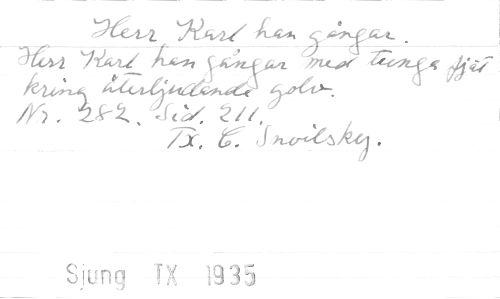 Herr Karl han gångar.
Herr Karl han gångar med tunga fjät
kring återljudande golv.
Nr. 282. Sid. 211.
Tx. C. Snoilsky.
Sjung TX 1935